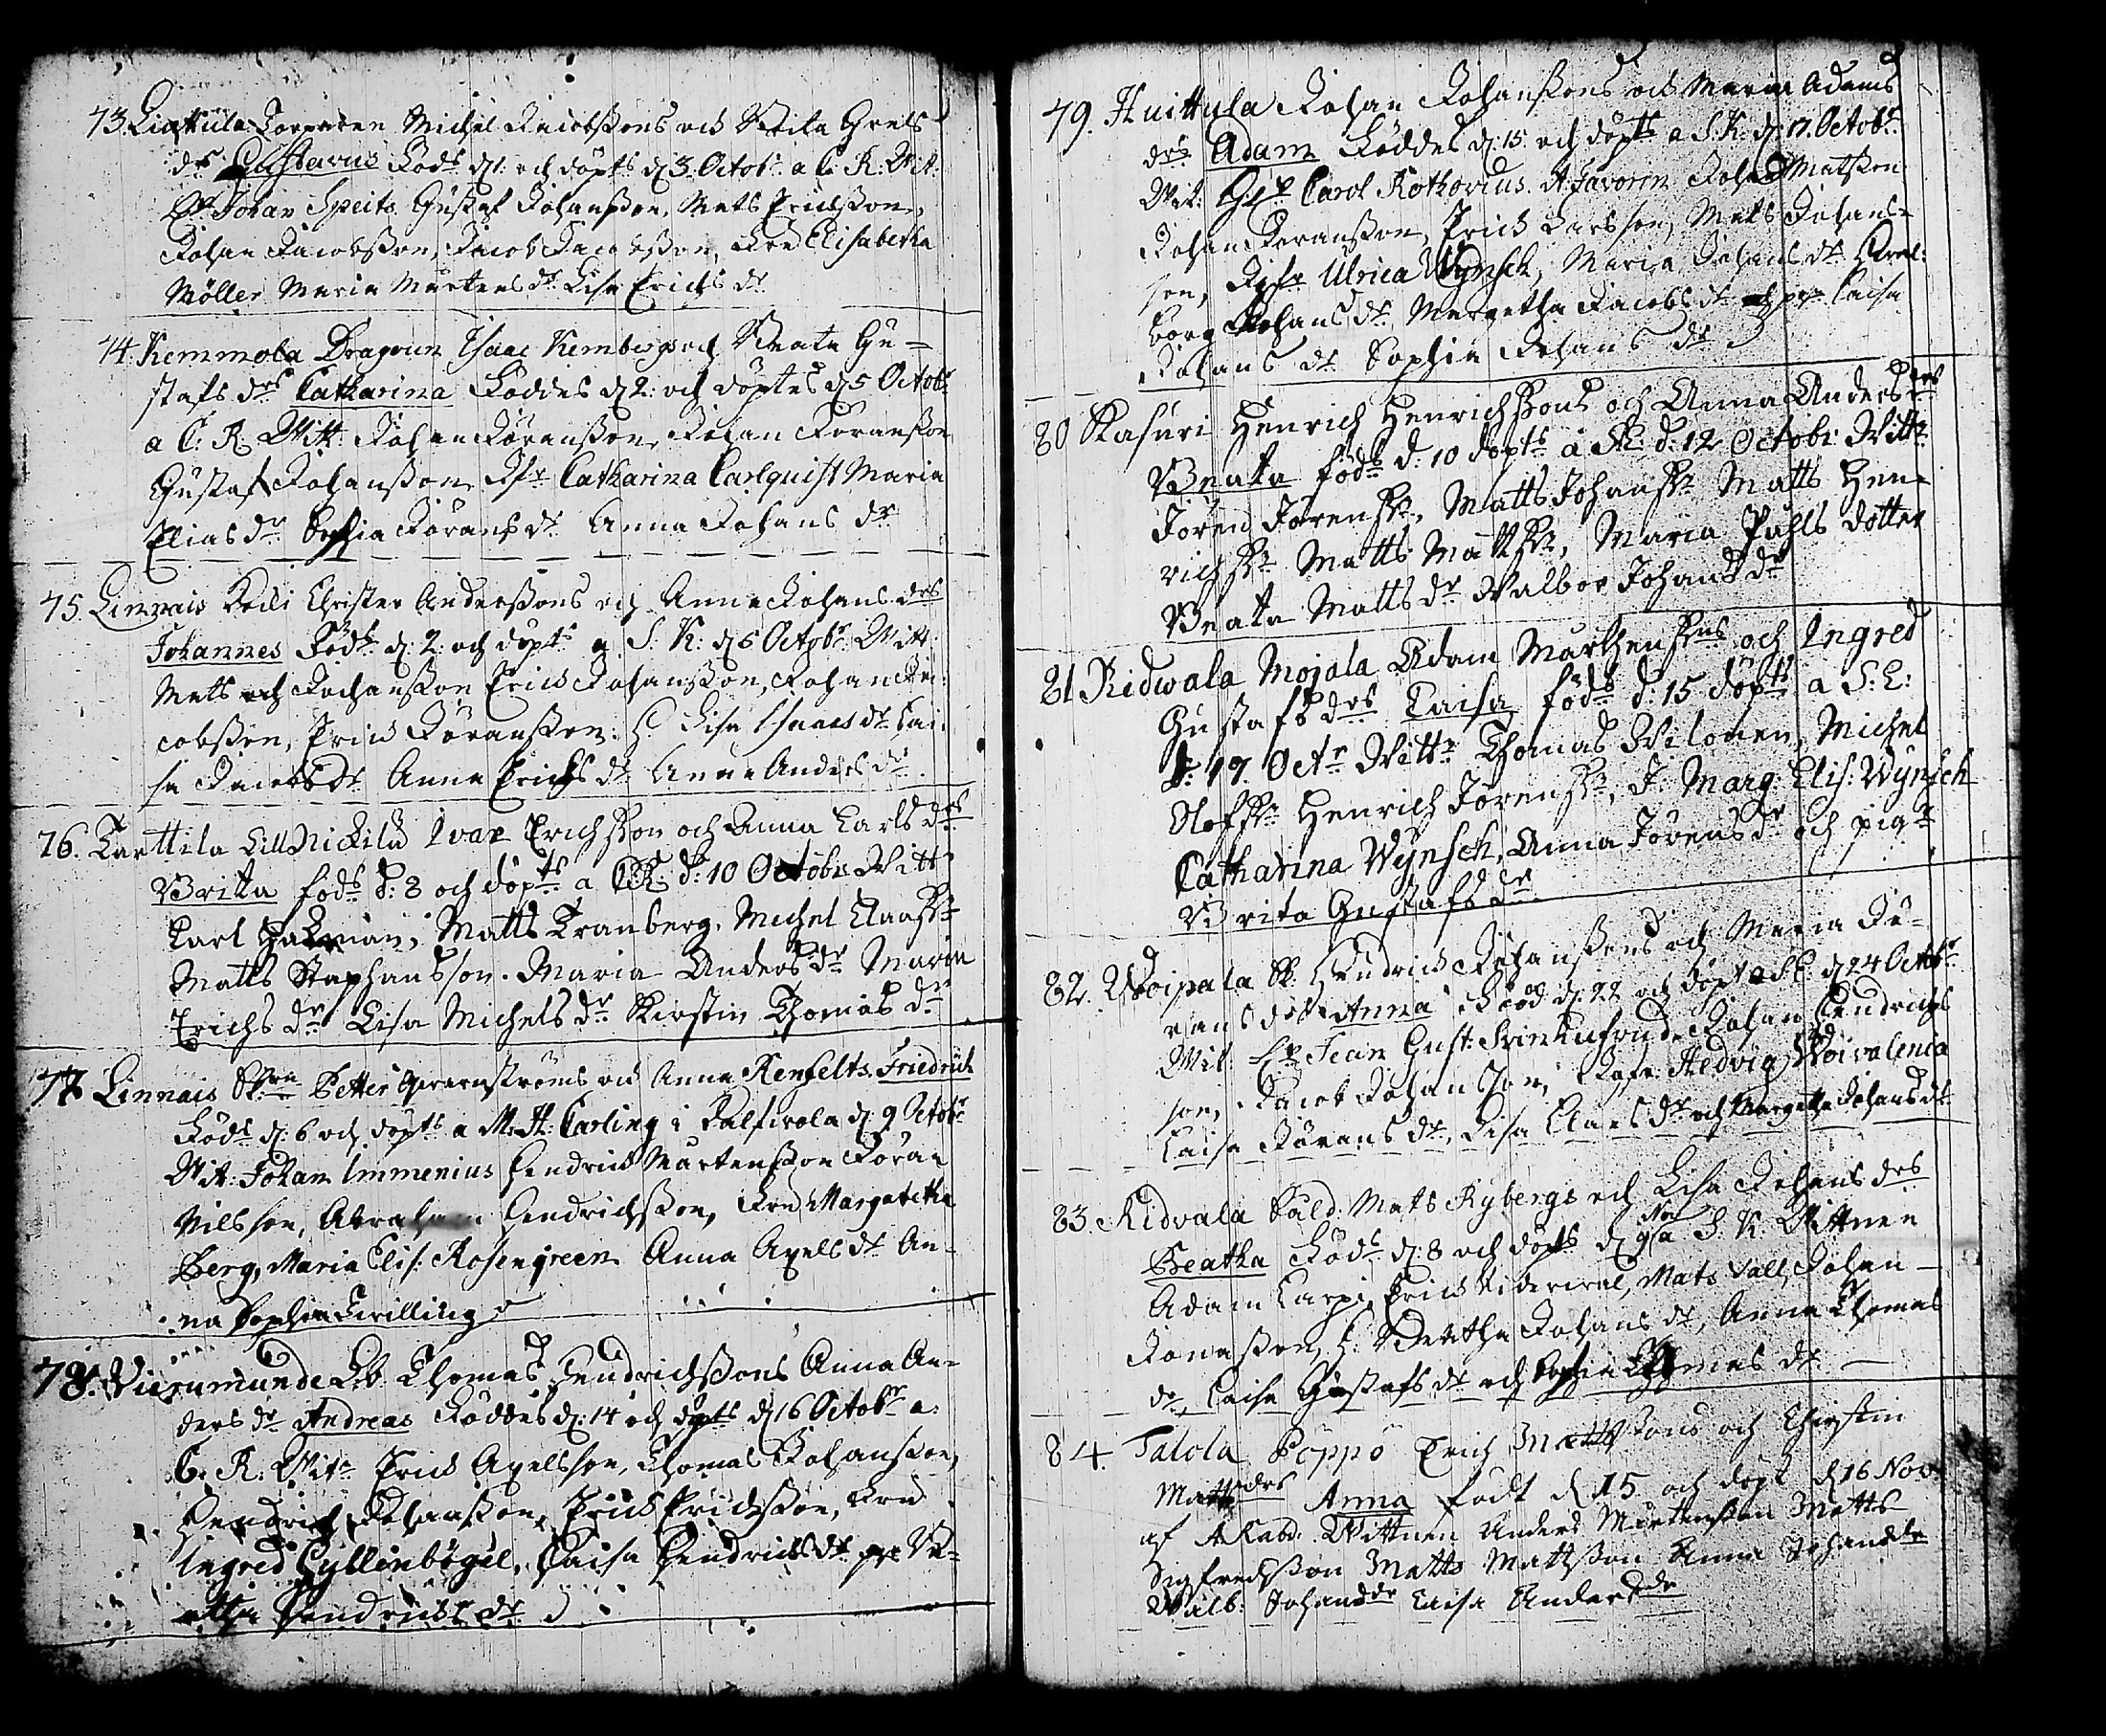 73. Liattula Torparen Michel Jacobssons och Brita Grels
drs Gustavus Föds d. 1. och döpts d. 3. Octobr a C. K. Wit:
Johan Speits Gustaf Johansson, Mats Ericksson,
Johan Jacobsson, Jacob Jacobsson, Elisabetha
Möller Maria Mårtens dr Lisa Erichs dr
74. Kemmola Dragoun Isaac Kembergs och Beata Gu=
stafs drs Catharina Föddes d. 2: och döptes d. 5 Octobr
a C: K: Witt. Johan Jöransson, Johan Jöransson
Gustaf Johansson Jfr Catharina Carlquist Maria
Elias dr Sophia Jörans dr Anna Johans dr
75. Linnais Christer Anderssons och Anna Johans drs
Johannes Föds d: 2. och döpts a S. K: d. 5 Octobr Witt:
Mats Johansson Erick Johansson, Johan Ja=
cobsson, Erick Jöransson. H. Lisa Isaacs dr Cai=
sa Jacobs dr Anna Erichs dr Anna Anders dr
76. Karttila Lill Nickilä Ivar Erichsson och Anna Carls drs
Brita föds d: 8 och döpts a d: 10 Octobr Witt
Carl Matts Tranberg, Michel Claass:n
Matts Staphansson. Maria Anders dr Maria
Erichs dr Lisa Michels dr Kirstin Thomas dr
77 Linnais Petter och Anna Renfelts Friedrich
Föds d: 6 och döpts a M. H: Carling i d. 9 Octobr
Wit: Johan Immenius Hendrick Mårtensson Jöran
Nilsson, Abraham Hendrichsson, Margaretha
Berg, Maria Elis: Rosengreen Anna Axels dr An=
na Sophia
78. Wiurumunde Lb. Thomas Hendrichssons Anna An=
ders dr Andreas Föddes d: 14 och döpts d. 16 Octobr a.
C. K: Witn Erick Axelsson, Thomas Johansson,
Hendrich Johansson, Erick Ericksson,
Ingred Gyllenbögel, Caisa Hendricks dr Be=
atha Hendricks dr
79. Huittula Johan Johanssons och Maria Adams
drs Adam Föddes d. 15. och döpts a S. K. d. 17. Octobr
Wit: Carol Rothovius. A. Favorin Johan Matsson
Johan Jöransson, Erick Larsson, Mats Johans=
son, Jfr Ulrica Wynsch, Maria Johans dr Wal=
borg Johans dr, Margetha Jacobs dr Caisa
Johans dr Sophia Johans dr
80 Kasuri Henrich Henrichssons och Anna Anders drs
Beata föds d: 10 döpts a d: 12 Octobr Witt:
Jören Jörenss:n, Matts Johanss:n Matts Hen=
richss:n Matts Mattss:n, Maria Påhls dotter
Beata Matts dr Walbor Johans dr
81 Ridwala Mojala Adam Marthenss:ns och Ingred
Gustafs drs Caisa föds d: 15 döpts a S: C:
d: 17. Octr Wittn Thomas Wilonen, Michel
Olofss:n Henrich Jörenss:n, J: Marg: Elis: Wynsch
Catharina Wynsch, Anna Jörens dr och pig:n
Brita Gustafs dr
82. Woipala Hendrick Johanssons och Maria Jö=
rans drs Anna Född d: 22 och döpt a S C d. 24 Octobr
Wit: Jean Gust: Johan Hendrichs
son, Jacob Johansson, Hedvig Woivalenia
Caisa Jörans dr, Lisa Claes dr och Margetha Johans dr
83. Ridvala Mats Rybergs och Lisa Johans drs
Beatha Föds d: 8 och döpts d 9 Nov a S. K. Wittnen
Adam Carpi, Erick Mats Johan
Jonasson, H. Beatha Johans dr, Anna Thomas
dr, Caisa Gustafs dr och Sophia Thomas dr
84. Talola Poppo Erich Mattssons och Christin
Matts drs Anna födt d. 15 och döpt d 16 Nov.
af A Wittnen Anders Mårtensson Matts
Sigfredsson Matts Mattsson Anna Johans dr
Walb: Johans dr Caisa Anders dr